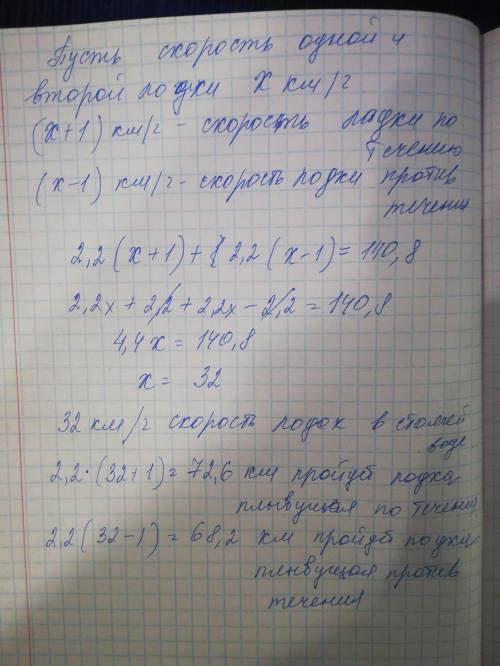 Пусть скорость одной и
второй лодки X км/г
(x+1) км/г - скорость лодки по
течению
(x-1) км/г - скорость лодки против
течения
2,2(x+1)+ 2,2(x-1)=140,8
2,2x + 2,2 + 2,2x - 2,2 = 140,8
4,4x = 140,8
x = 32
32 км/г скорость лодок в стоячей
воде
2,2·(32+1)=72,6 км пройдет лодка
плывущая по течению
2,2(32-1)=68,2 км пройдет лодка
плывущая против
течения